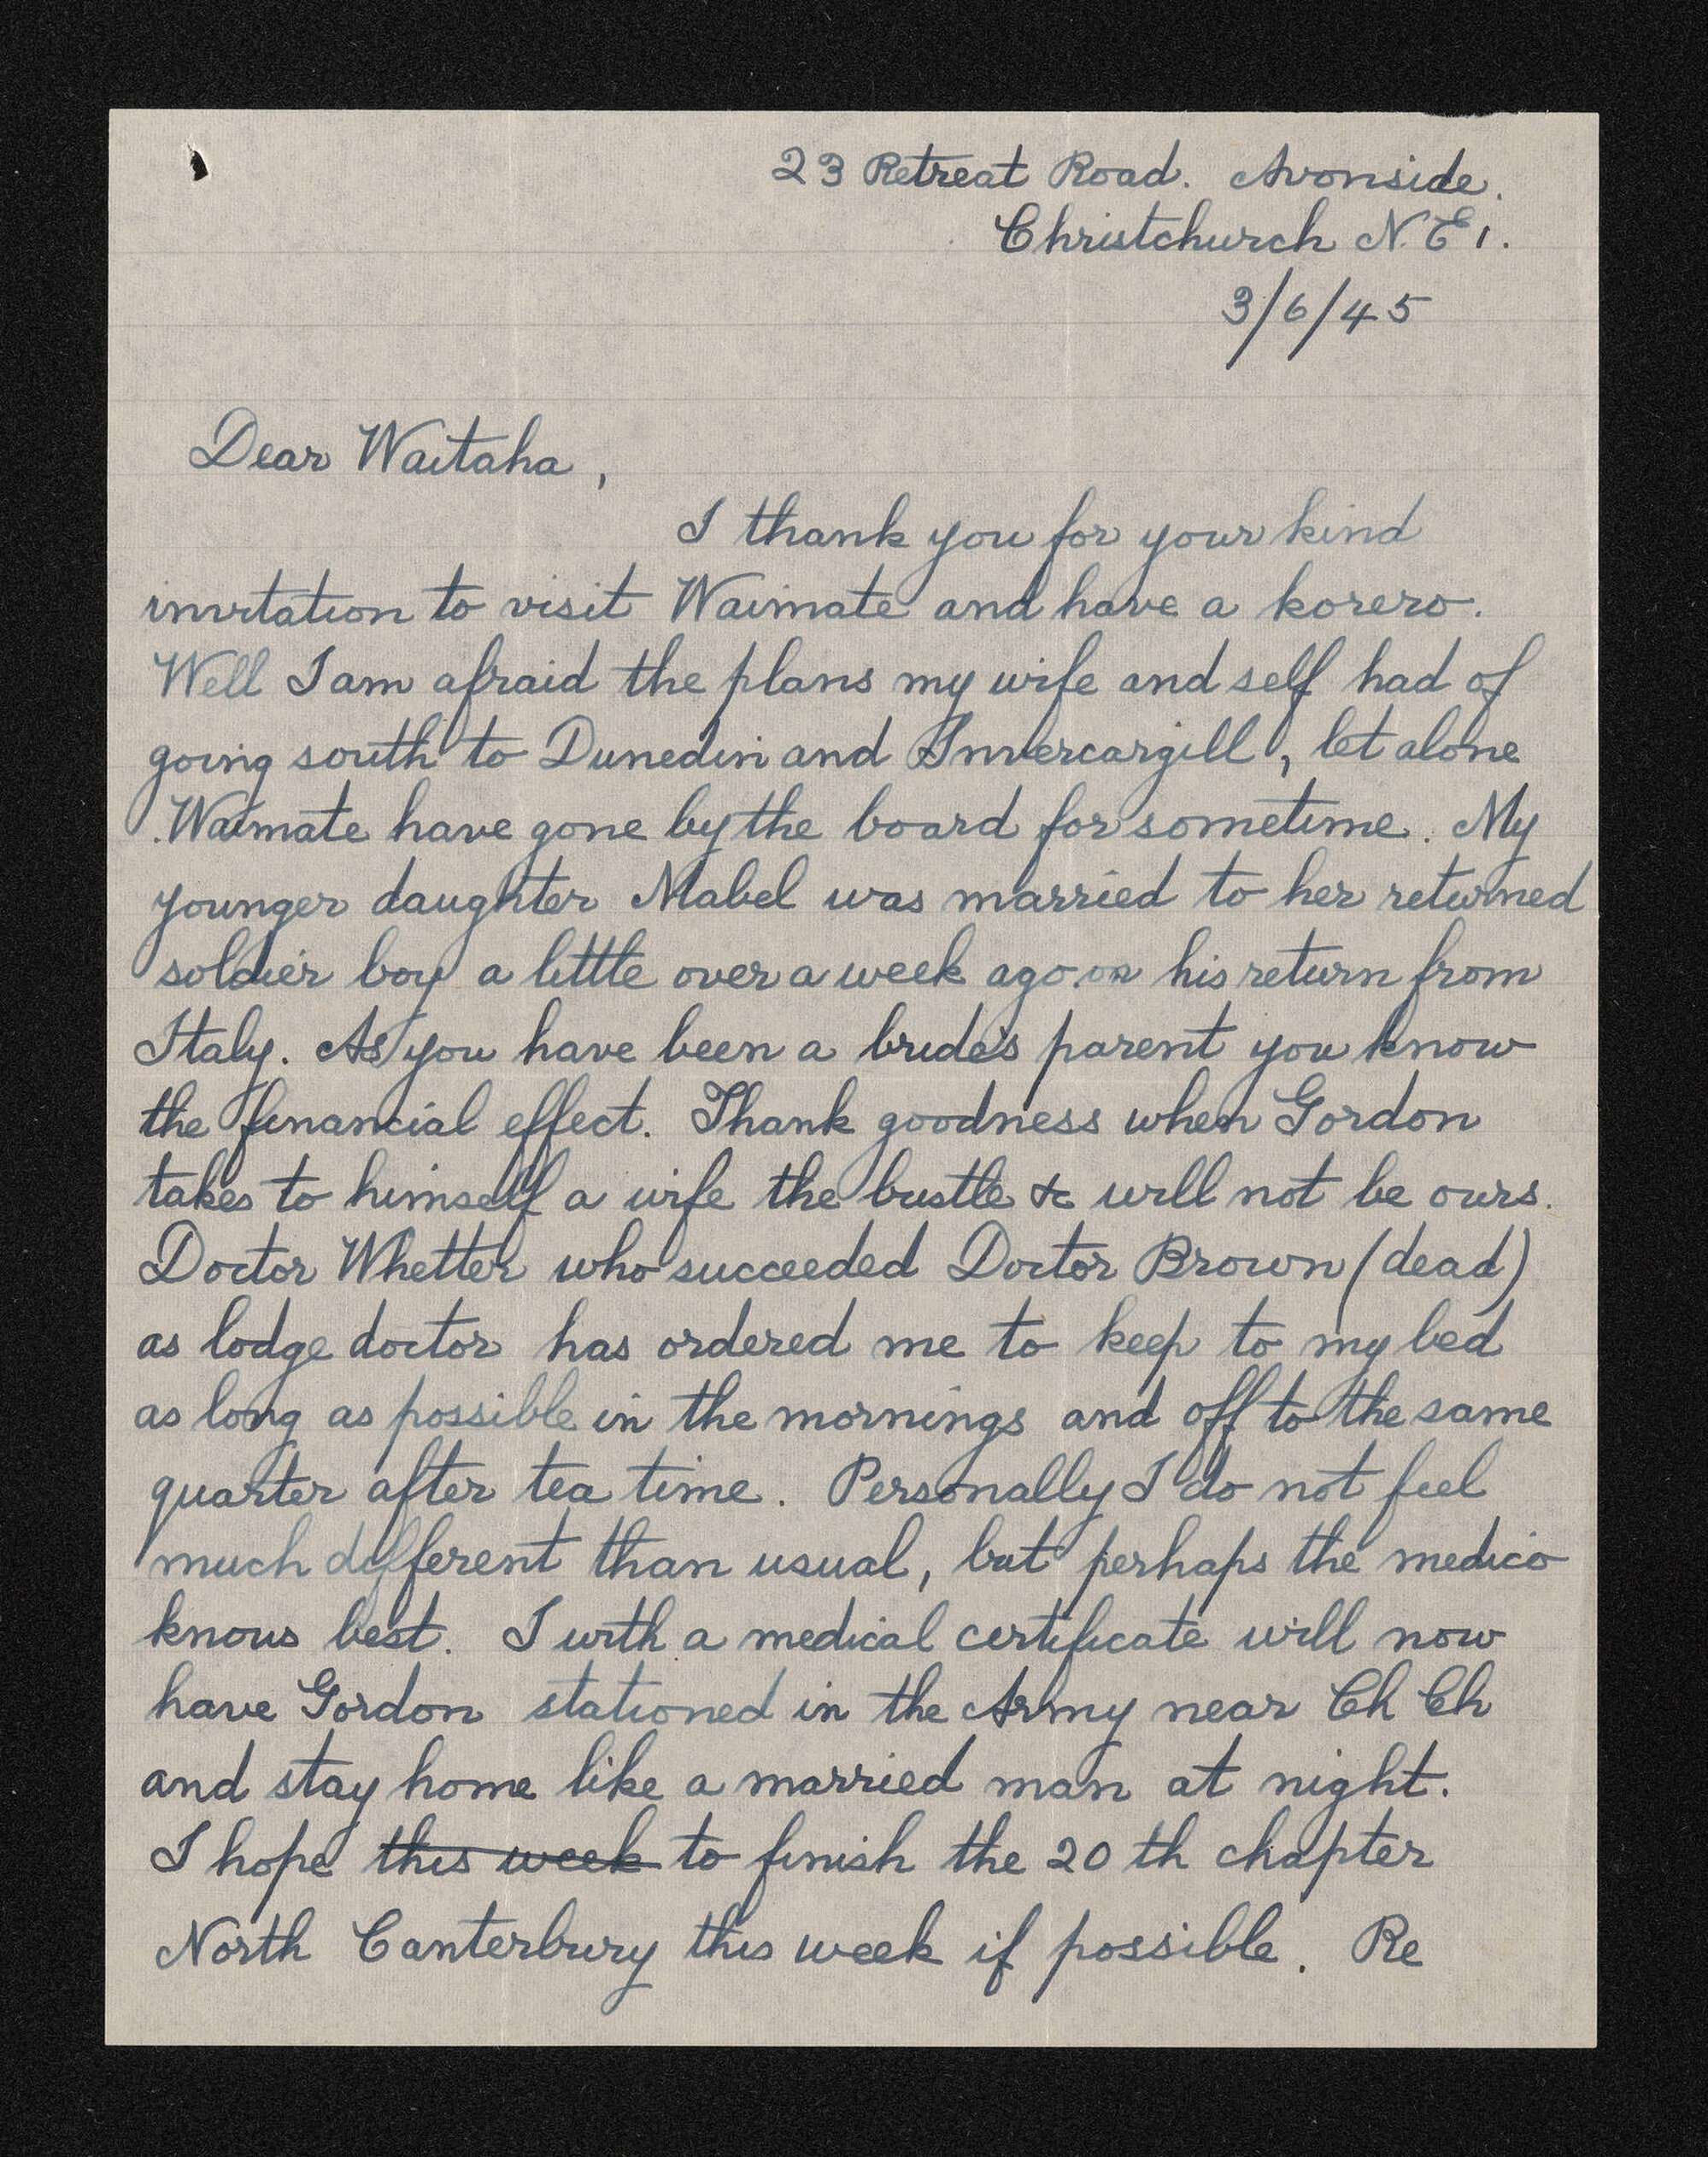 23 Retreat Road. Avonside.
Christchurch N.E 1.
3/6/45
Dear Waitaha,
I thank you for your kind
invitation to visit Waimate and have a korero.
Well I am afraid the plans my wife and self had of
going south to Dunedin and Invercargill, let alone
Waimate have gone by the board for sometime. My
younger daughter Mabel was married to her returned
soldier boy a little over a week ago on his return from
Italy. As you have been a bride's parent you know
the financial effect. Thank goodness when Gordon
takes to himself a wife the bustle &c will not be ours.
Doctor Whetter who succeeded Doctor Brown (dead)
as lodge doctor has ordered me to keep to my bed
as long as possible in the mornings and off to the same
quarter after tea time. Personally I do not feel
much different than usual, but perhaps the medico
knows best. I with a medical certificate will now
have Gordon stationed in the Army near Ch Ch
and stay home like a married man at night.
I hope this week to finish the 20th chapter
North Canterbury this week if possible. Re